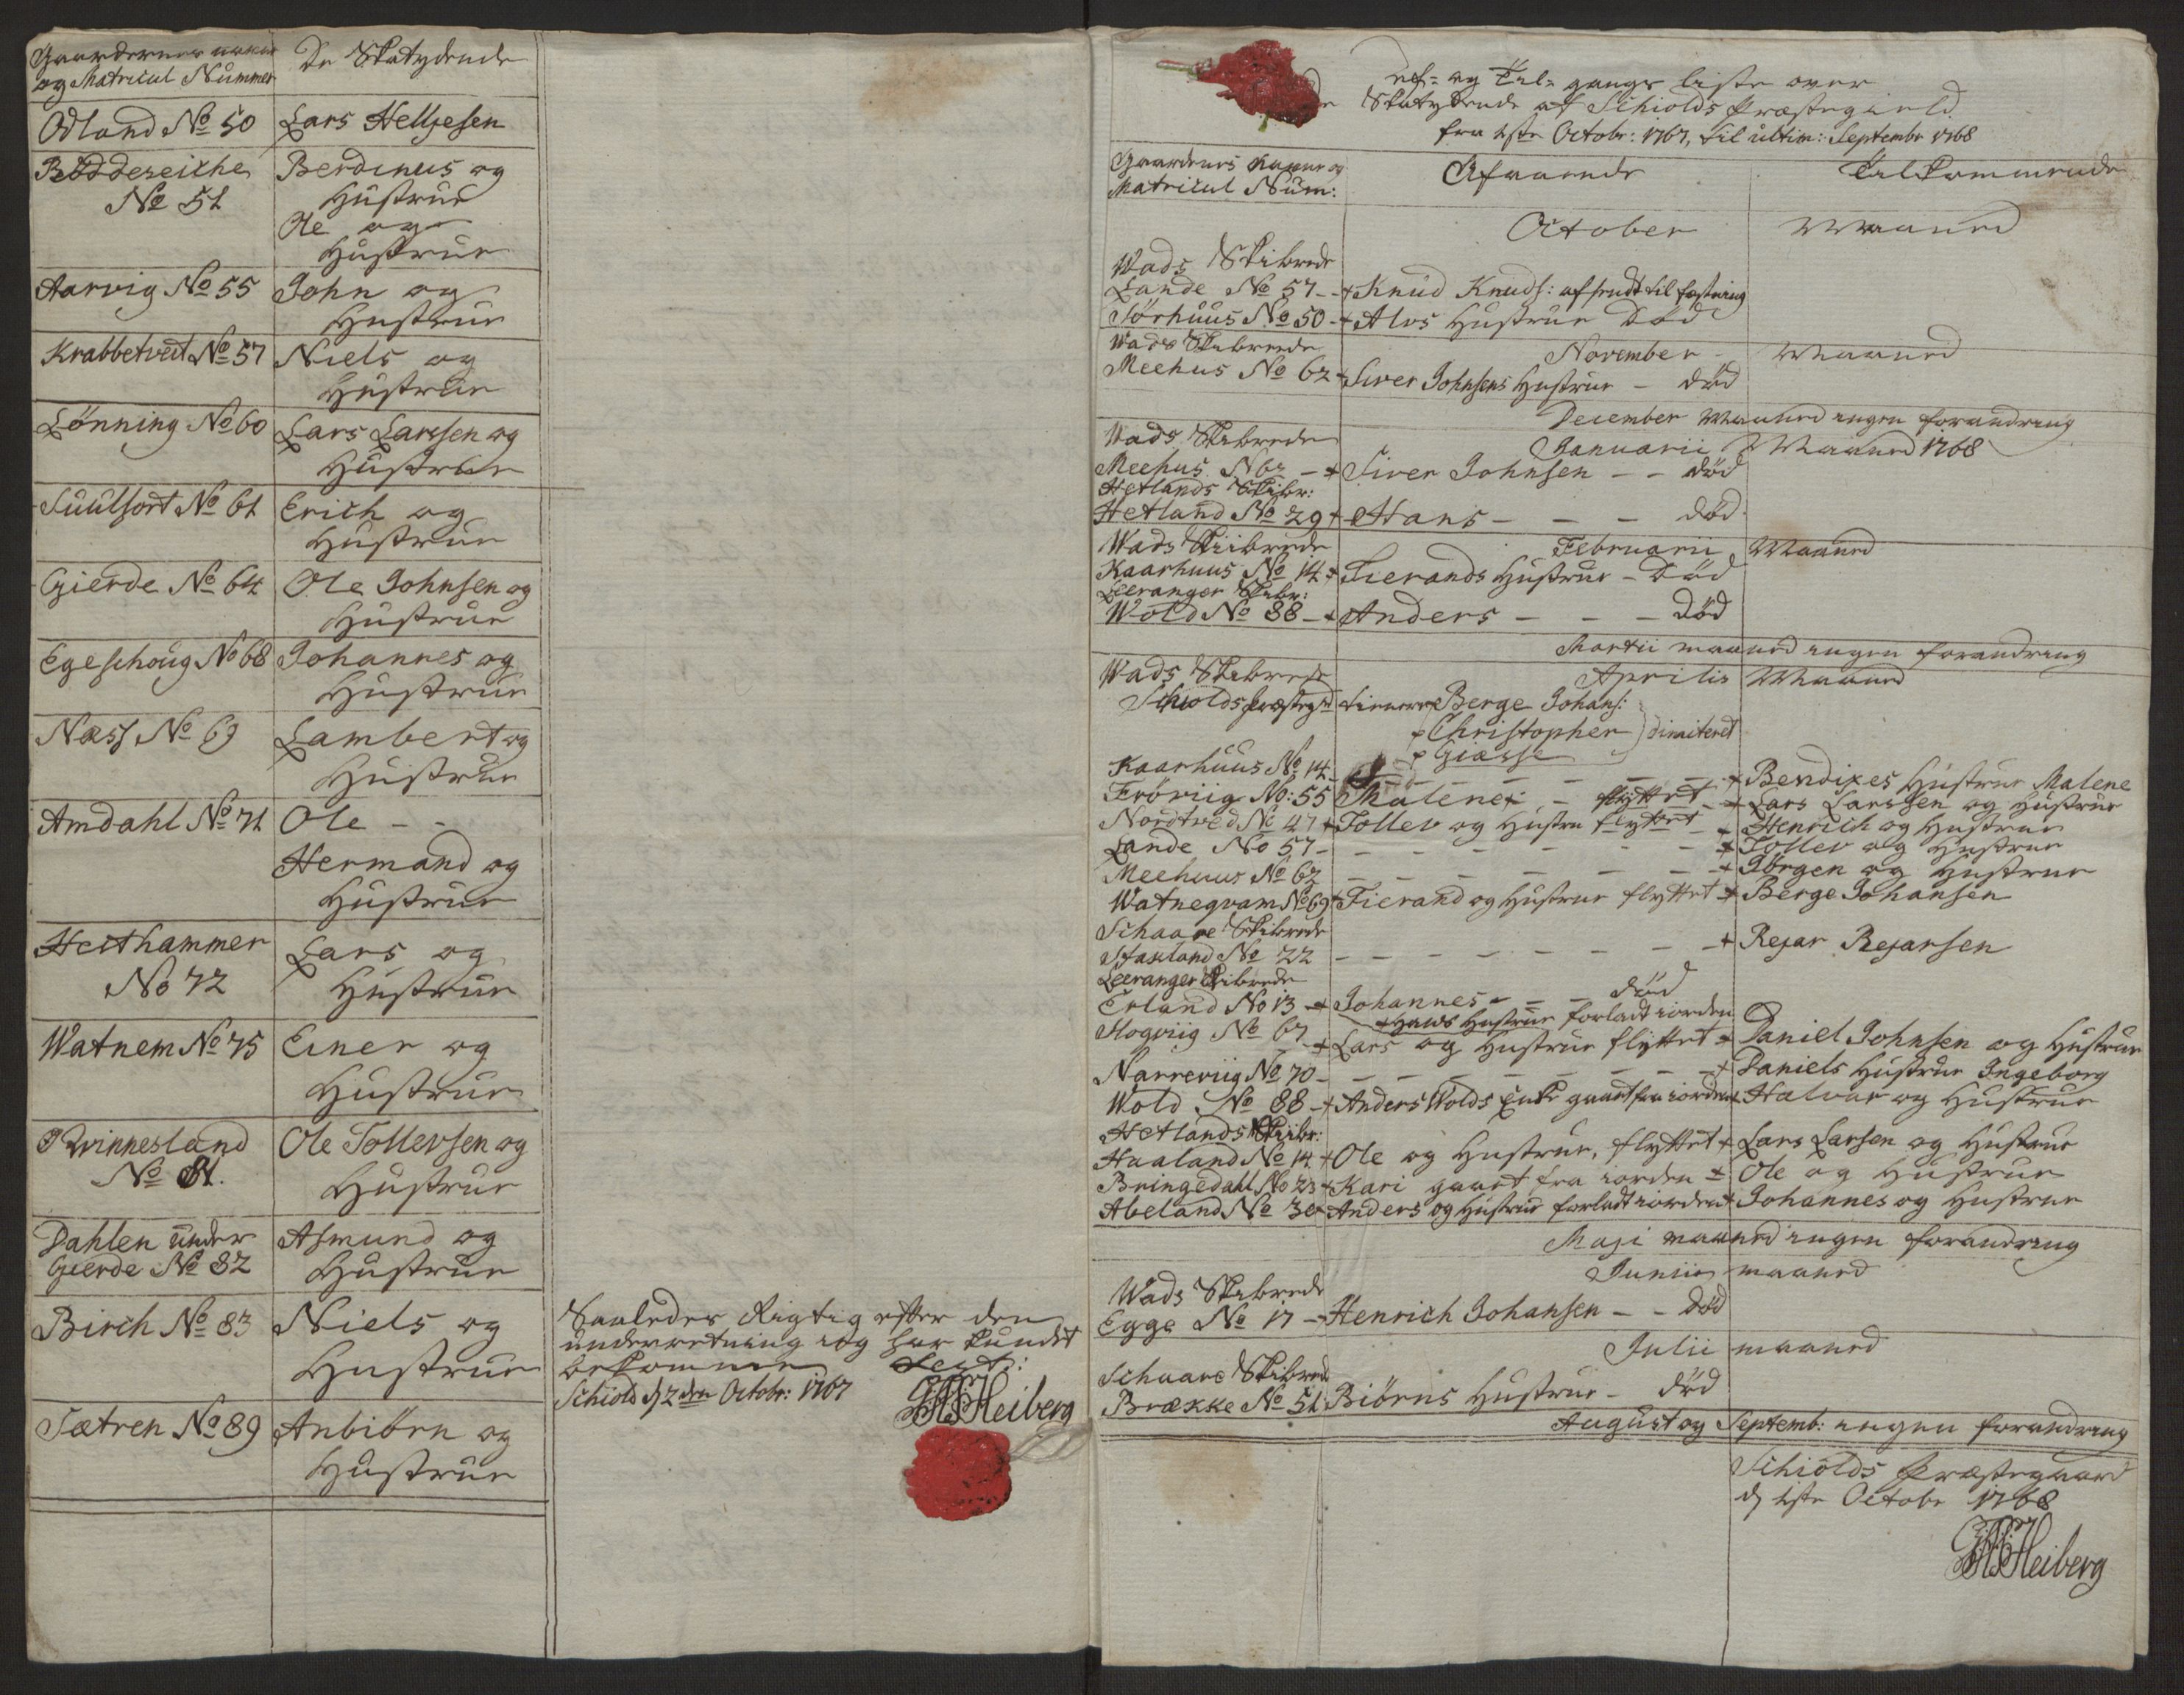 Gaardernes nafne
og Matricul Nummer
De Skatydende
Odland No 50
Lars Helljesen
Røddereiche
No 51
Berdinus og
Hustrue
Ole og
Hustrue
Aarvig No 55
John og
Hustrue
Krabbetveit No 57
Niels og
Hustrue
Lønning No 60
Lars Larssen og
Hustrue
Suulfort No 61
Erich og
Hustrue
Gierde No 64
Ole Johnsen og
Hustrue
Egeschoug No 68
Johannes og
Hustrue
Næss No 69
Lambert og
Hustrue
Amdahl No 71
Ole - -
Hermand og
Hustrue
Heithammer
No 72
Lars og
Hustrue
Watnem No 75
Einer og
Hustrue
Qvinnesland
No 81.
Ole Tollevsen og
Hustrue
Dahlen under
Gierde No 82
Asmund og
Hustrue
Birch No 83
Niels og
Hustrue
Sætren No 89
Anbiörn og
Hustrue
Saaledes Rigtig efter den
underretning jeg har kundet
bekomme
Schiold d 2den Octobr: 1767
Heiberg
Af- og Til- gangs liste over
Skatydende af Schiolds Præstegield
fra 1ste Octobr: 1767, til ultim: Septembr 1768
Gaardenes Nafne og
Matricul Num:
Afgaaende
Tilkommende
October Maaned
Wads Skibrede
Lande No 57 - + Knud Knuds: afsendt til fæstning
Sørhuus No 50 - + Alvs Hustrue Død
Wads Skibrede
November Maaned
Meehus No 62 + Siver Johnsens Hustrue - død
December Maaned ingen forandring
Wads Skibrede
Januarii Maaned 1768
Meehus No 62 - + Siver Johnsen - - død
Hetlands Skibr:
Hetland No 29 + Hans - - - død
Wads Skibrede
Februarii Maaned
Kaarhuus No 14 + Tierands Hustrue - Død
Leeranger Skibr:
Wold No 88 - + Anders - - - Død
Martii maaned ingen forandring
Wads Skibrede
Aprilis Maaned
Schiolds Præstegrd tienere Berge Johans:
Christopher dimiteret
Giæsse
Kaarhuus No 14 - - - - - + Bendixes Hustrue Malene
Frøviig No: 55 Malene - flyttet - + Lars Larssen og Hustrue
Nordtved No 47 + Tollev og Hustru flyttet - + Henrich og Hustrue
Lande No 57 - - - - - - + Tollev og Hustrue
Meehuus No 62 - - - - - + Jörgen og Hustrue
Watneqvam No 69 + Tierand og Hustrue flyttet + Berge Johansen
Schaare Skibrede
Stakland No 22 - - - - - - + Rejar Rejarsen
Leeranger Skibrede
Erland No 13 + Johannes - - - død
+ Hans Hustrue forladt iorden
Hogviig No 67 - + Lars og Hustrue flyttet + Daniel Johnsen og Hustrue
Narreviig No 70 - - - - - - + Daniels Hustrue Ingeborg
Wold No 88 - + Anders Wolds Enke gaaet fra iorden + Halvar og Hustrue
Hetlands Skibr:
Haaland No 14 + Ole og Hustrue, flyttet + Lars Larsen og Hustrue
Bringedahl No 23 + Kari gaaet fra iorden + Ole og Hustrue
Abeland No 30 + Anders og Hustrue forladt iorden + Johannes og Hustrue
Maji maaned ingen forandring
Junii maaned
Wads Skibrede
Egge No 17 - Henrich Johansen - - død
Julii maaned
Schaare Skibrede
Brække No 51 Biörns Hustrue - død
August og Septemb: ingen forandring
Schiolds Præstegaard
d 1ste Octobr 1768
Heiberg